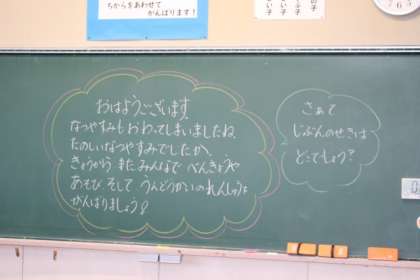 ちからをあわせて
がんばります！
おはようございます。
なつやすみもおわってしまいましたね。
たのしいなつやすみでしたか。
きょうから またみんなで べんきょうや
あそび そして うんどうかいのれんしゅうを
がんばりましょう！
さぁて
じぶんのせきは
どこでしょう？